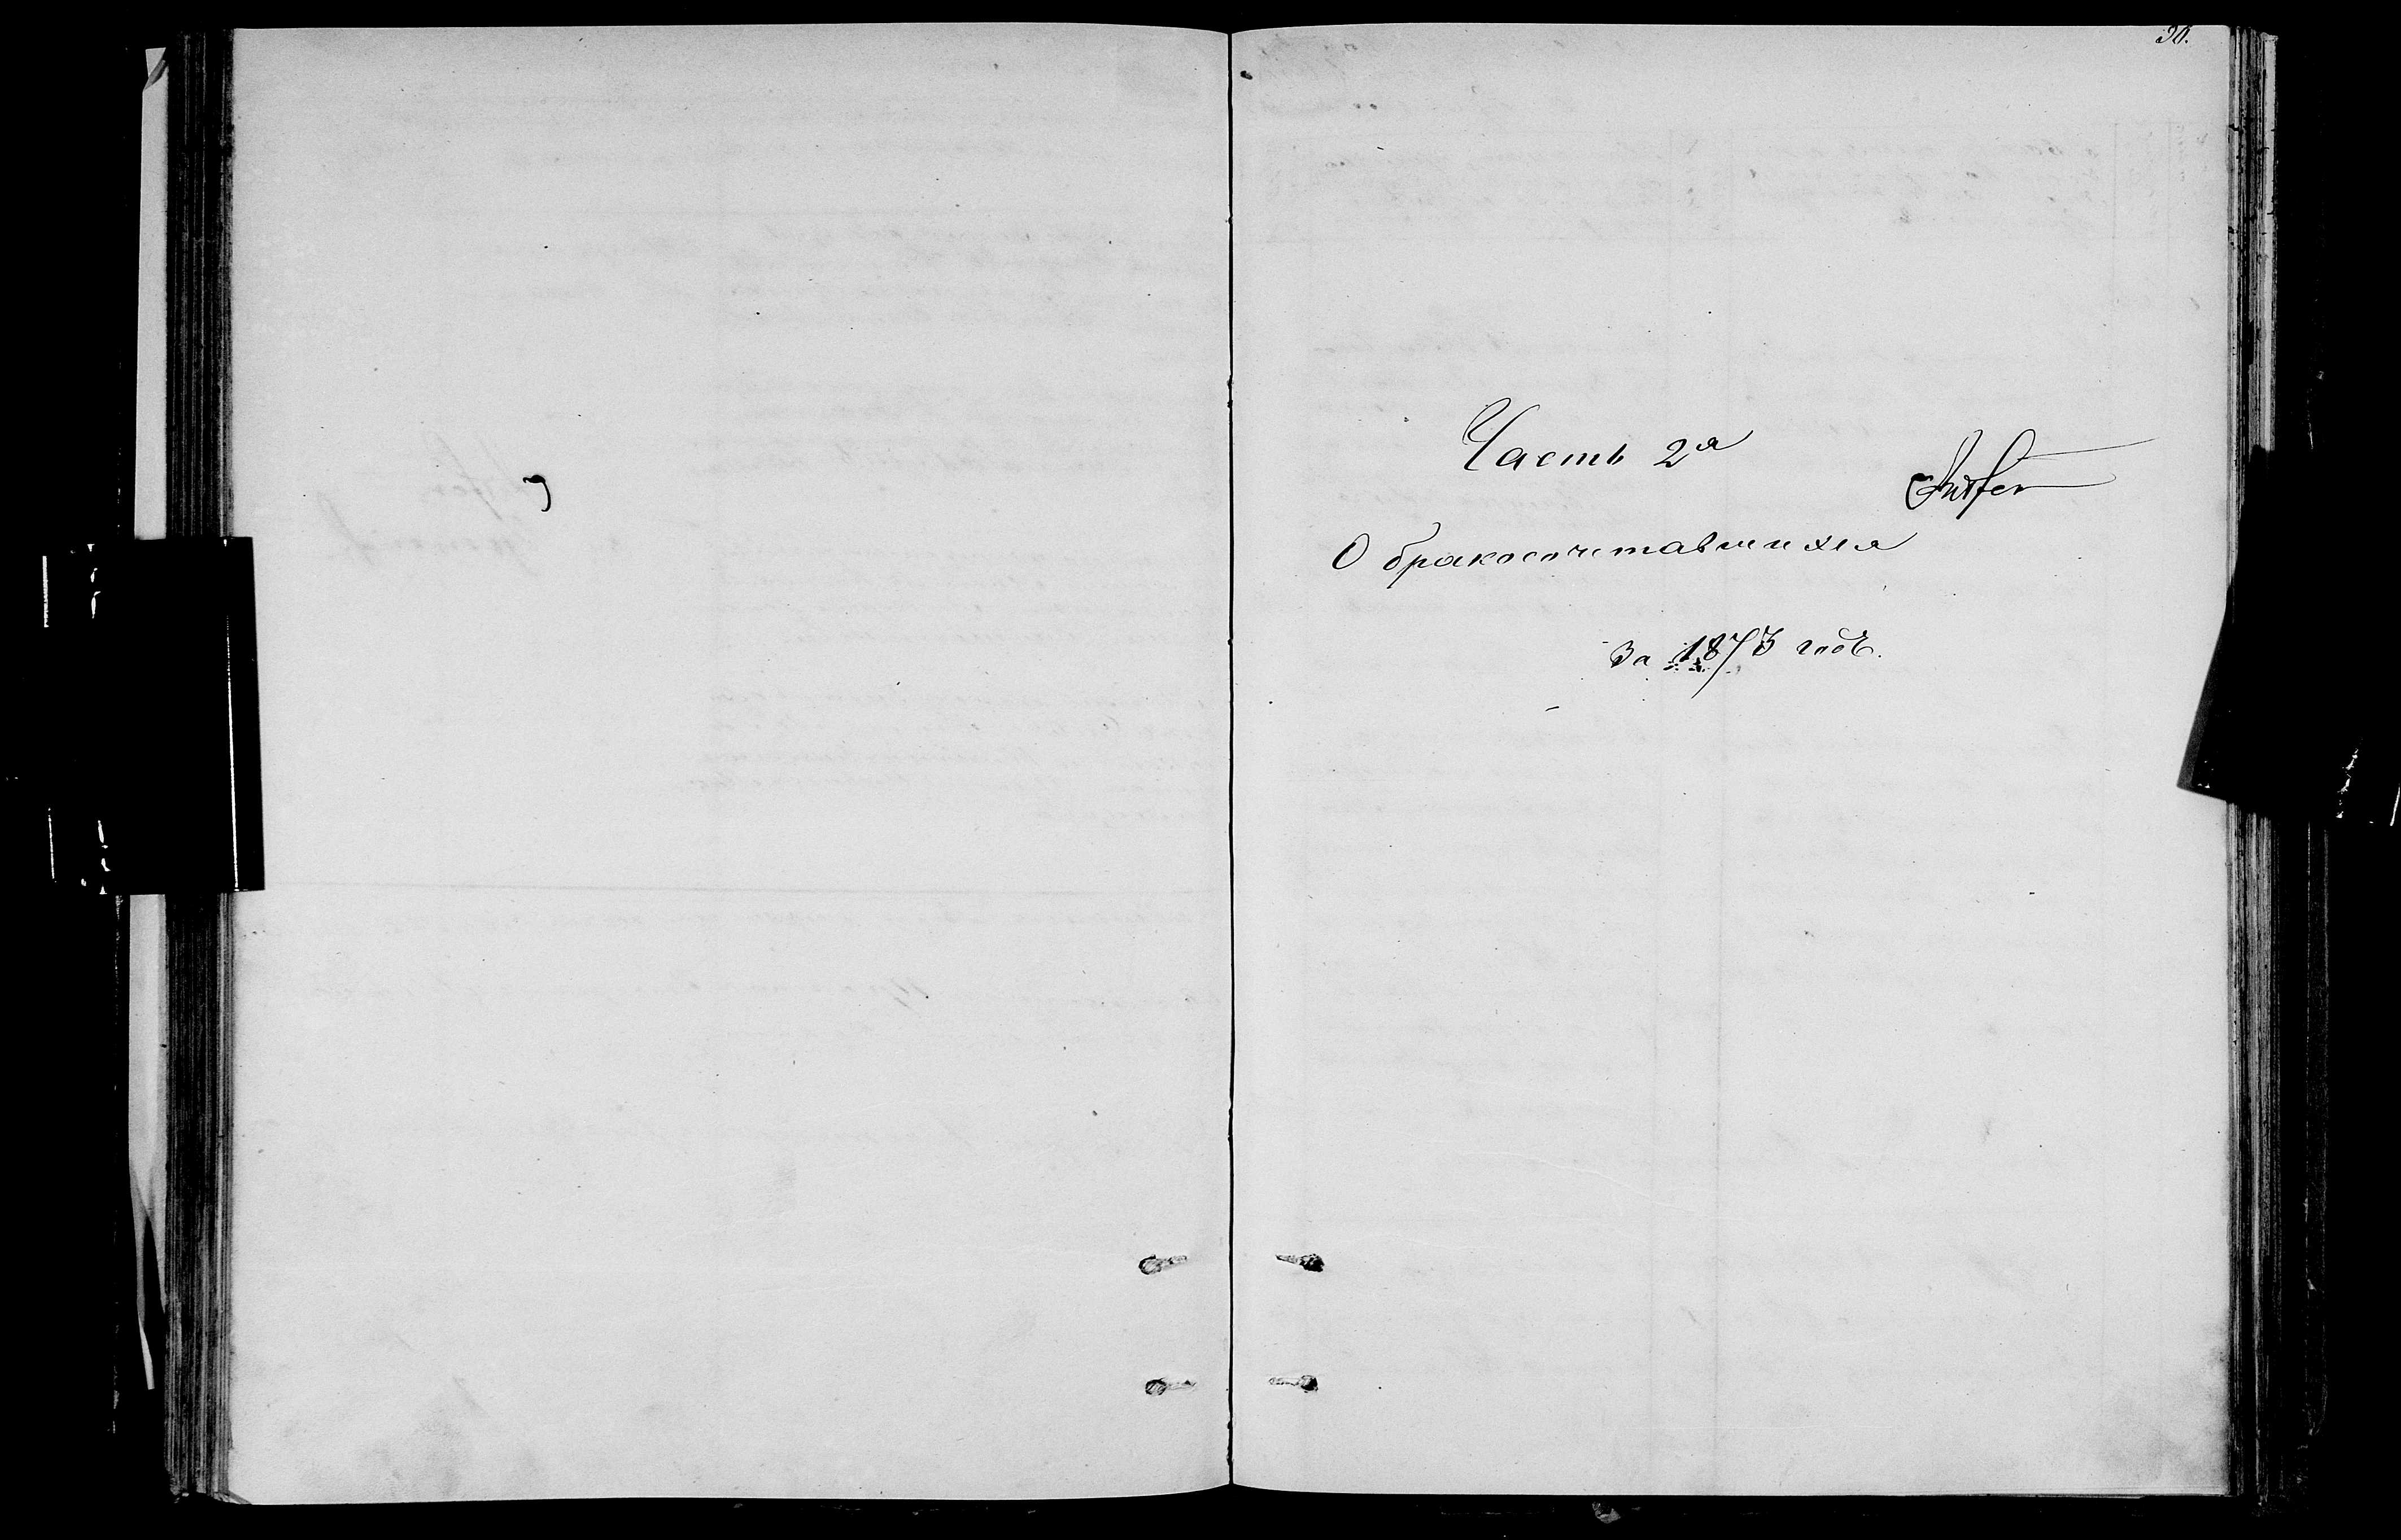 30.
Часть 2я
О бракосочетавшихся
за 1873 годъ.